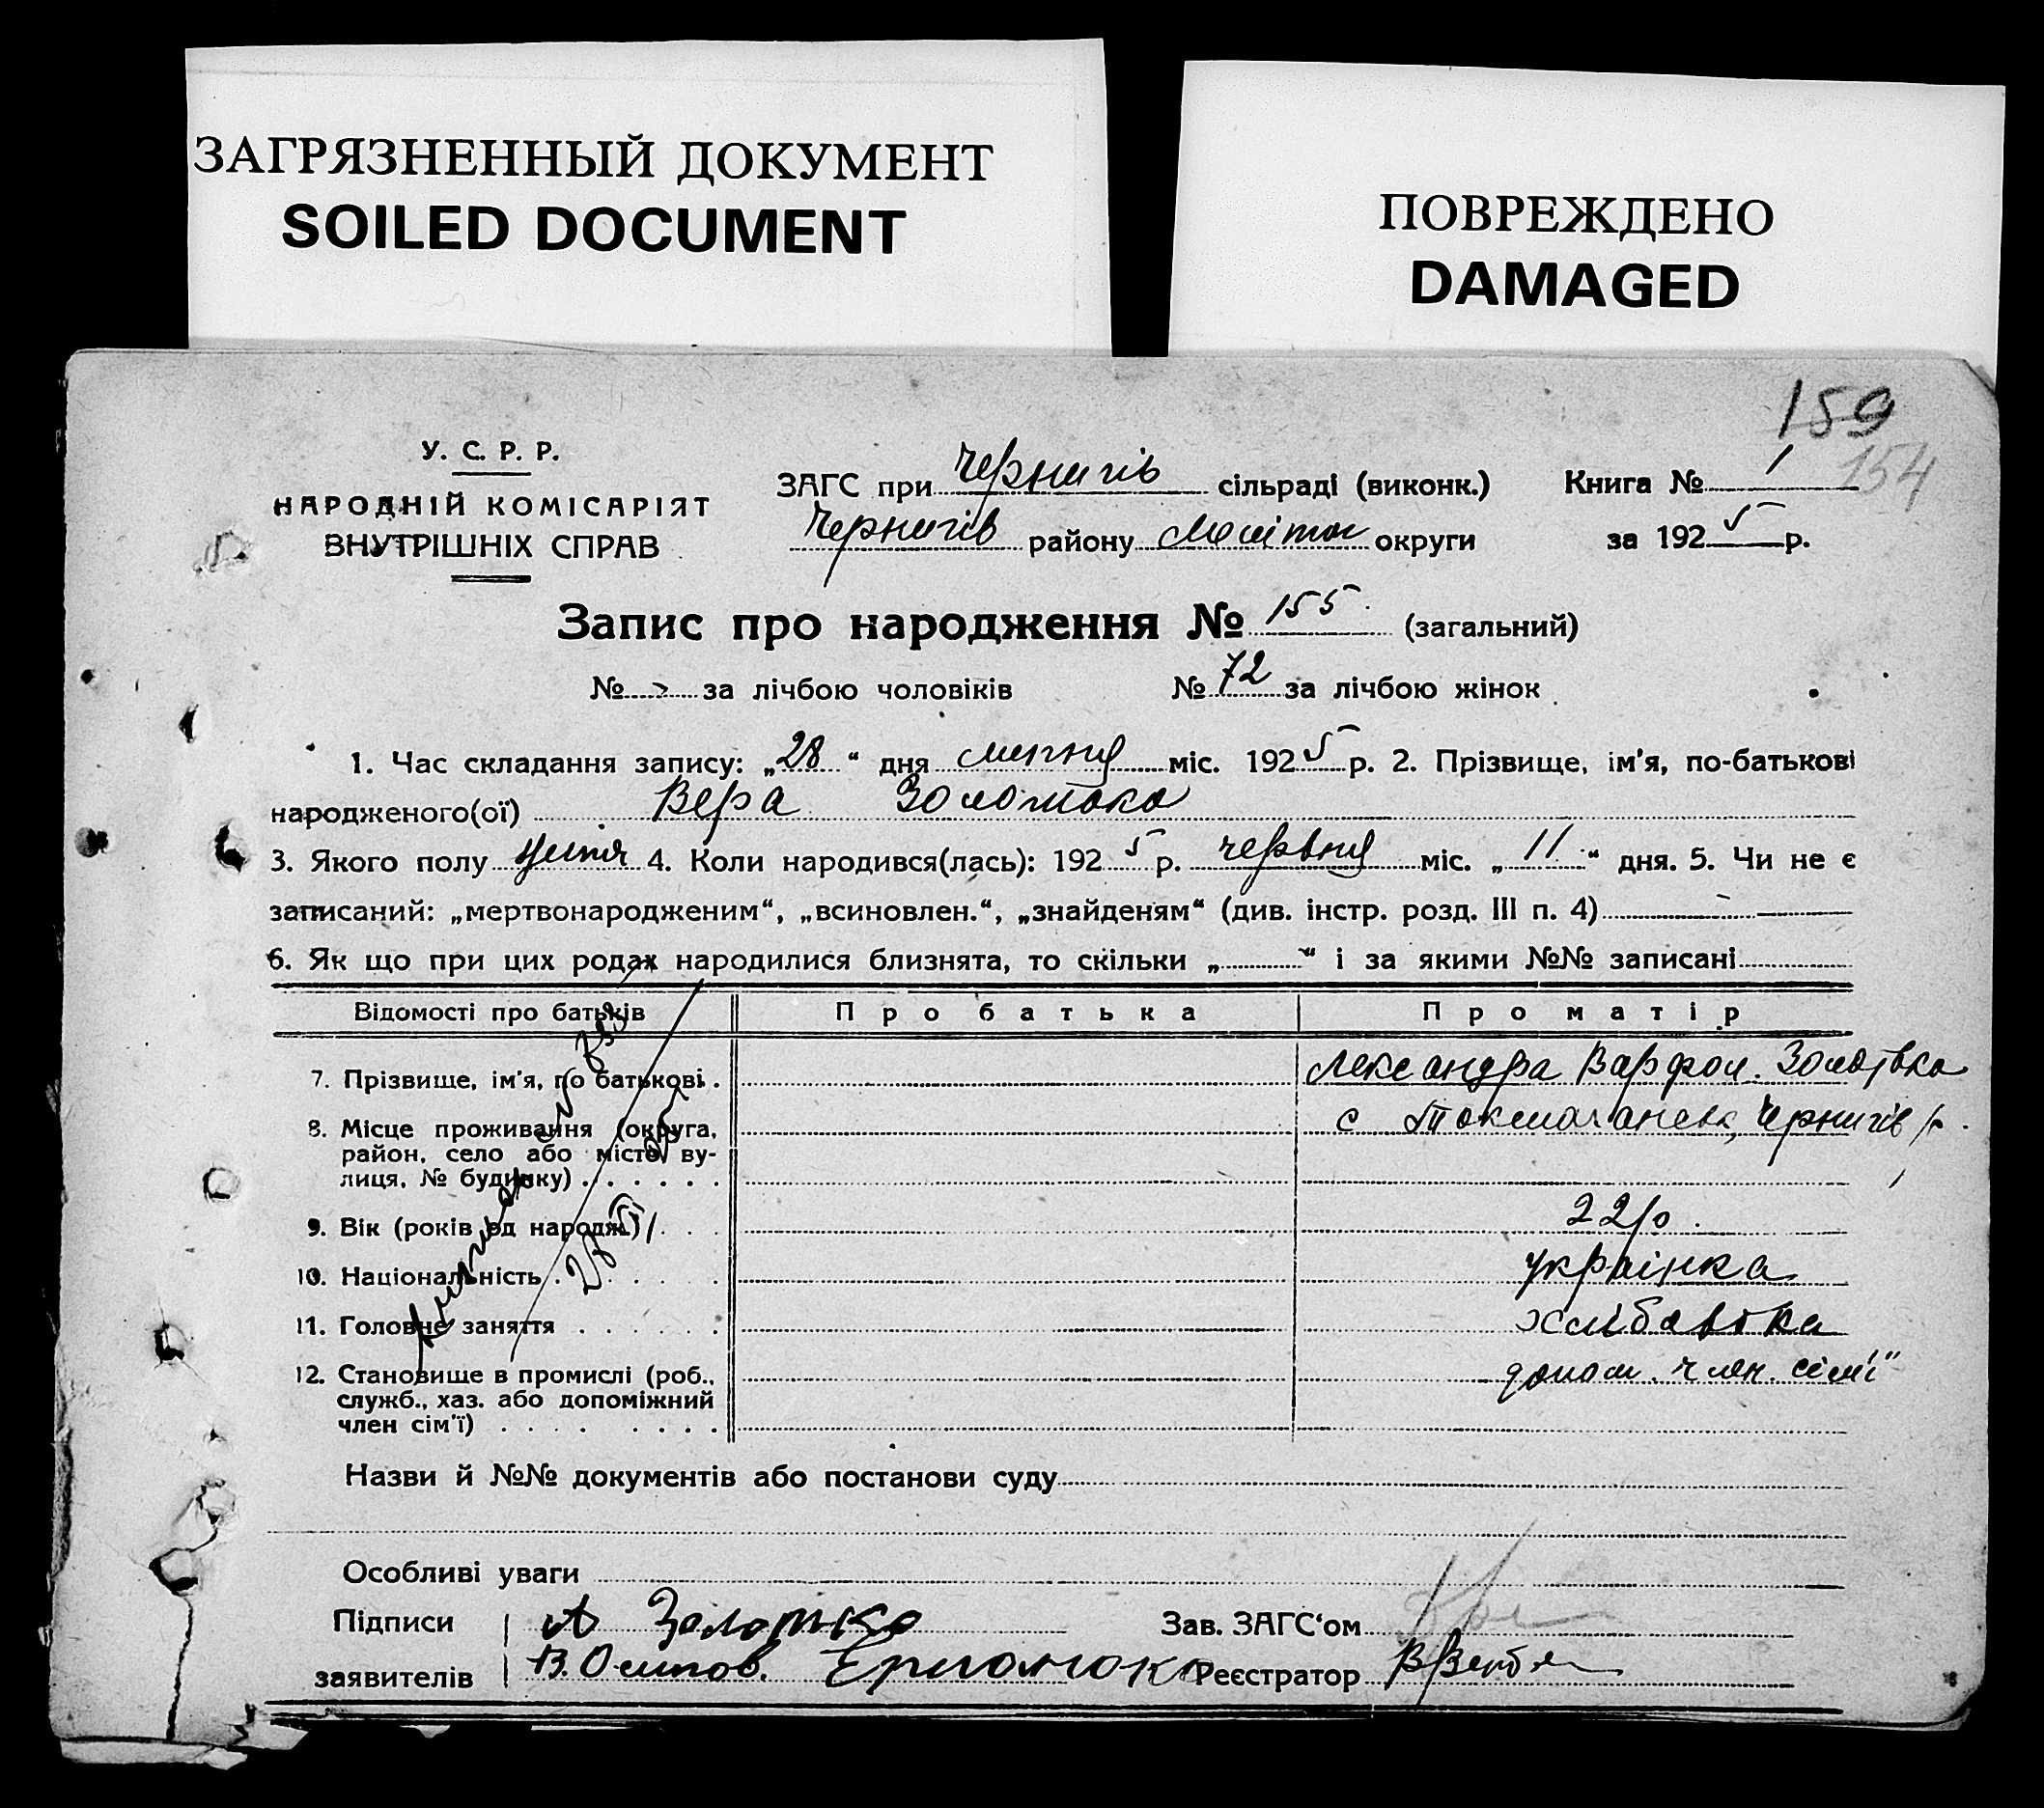 ЗАГРЯЗНЕННЫЙ ДОКУМЕНТ
SOILED DOCUMENT
ПОВРЕЖДЕНО
DAMAGED
159
154
У. С. Р. Р.
НАРОДНІЙ КОМІСАРІЯТ
ВНУТРІШНІХ СПРАВ
ЗАГС при Чернигів сільраді (виконк.)
Чернигів району Меліток округи
Книга № 1
за 1925 р.
Запис про народження № 155. (загальний)
№ за лічбою чоловіків № 72 за лічбою жінок
1. Час складання запису: „28“ дня липня міс. 1925 р. 2. Прізвище, ім'я, по-батькові
народженого(ої) Вера Золотако
3. Якого полу 4. Коли народився(лась): 1925 р. червня міс. „11“ дня. 5. Чи не є
записаний: „мертвонародженим“, „всиновлен.“, „знайденям“ (див. інстр. розд. III п. 4)
6. Як що при цих родах народилися близнята, то скільки „ “ і за якими №№ записані
Відомості про батьків Про батька Про матір
7. Прізвище, ім'я, по батькові. Лександра Варфол. Золотько
8. Місце проживання (округа, район, село або місто, вулиця, № будинку) с Токмачанськ, Чернигів р.
9. Вік (років од народж.) 22 р.
10. Національність українка
11. Головне заняття хлібовтка
12. Становище в промислі (роб., служб., хаз. або допоміжний член сім'ї) допом. член. сем'ї
Назви й №№ документів або постанови суду
Особливі уваги
Підписи А Золотко Зав. ЗАГС‘ом
заявителів В. Осипов. Ермолюк Реєстратор